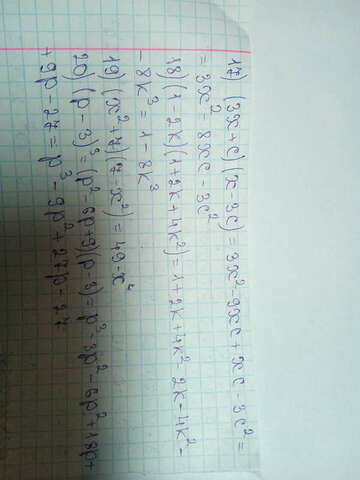 17) (3x+c)(x-3c)=3x²-9xc+xc-3c²=
=3x²-8xc-3c²
18) (1-2k)(1+2k+4k²)=1+2k+4k²-2k-4k²-
-8k³=1-8k³
19) (x²+7)(7-x²)=49-x⁴
20) (p-3)³=(p²-6p+9)(p-3)=p³-3p²-6p²+18p+
+9p-27=p³-9p²+27p-27